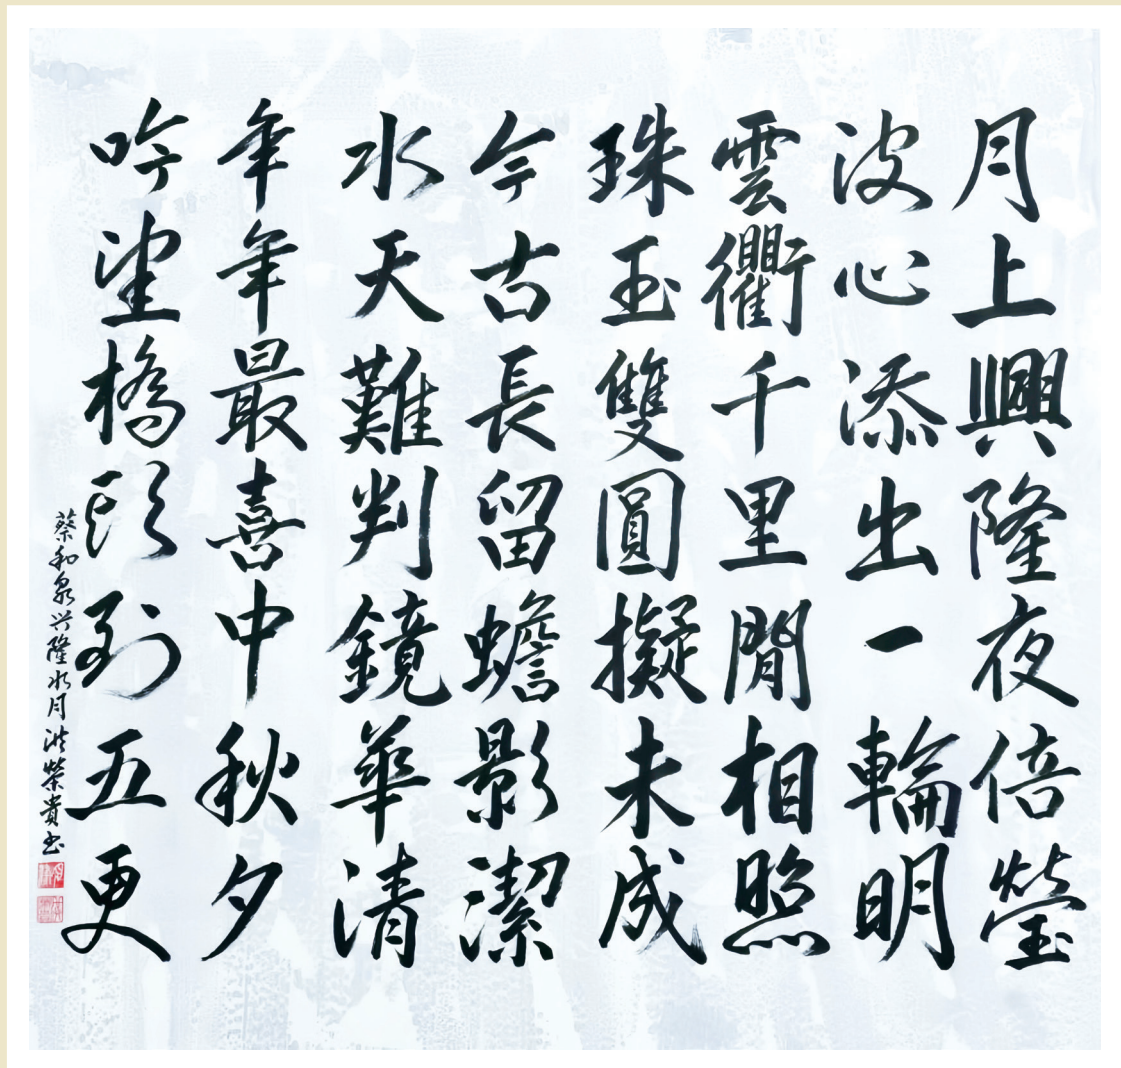 月上興隆夜倍瑩
波心添出一輪明
雲衢千里閒相照
珠玉雙圓擬未成
今古長留蟾影潔
水天難判鏡華清
年年最喜中秋夕
吟望橋頭到五更
蔡和泉兴隆水月洪榮貴书